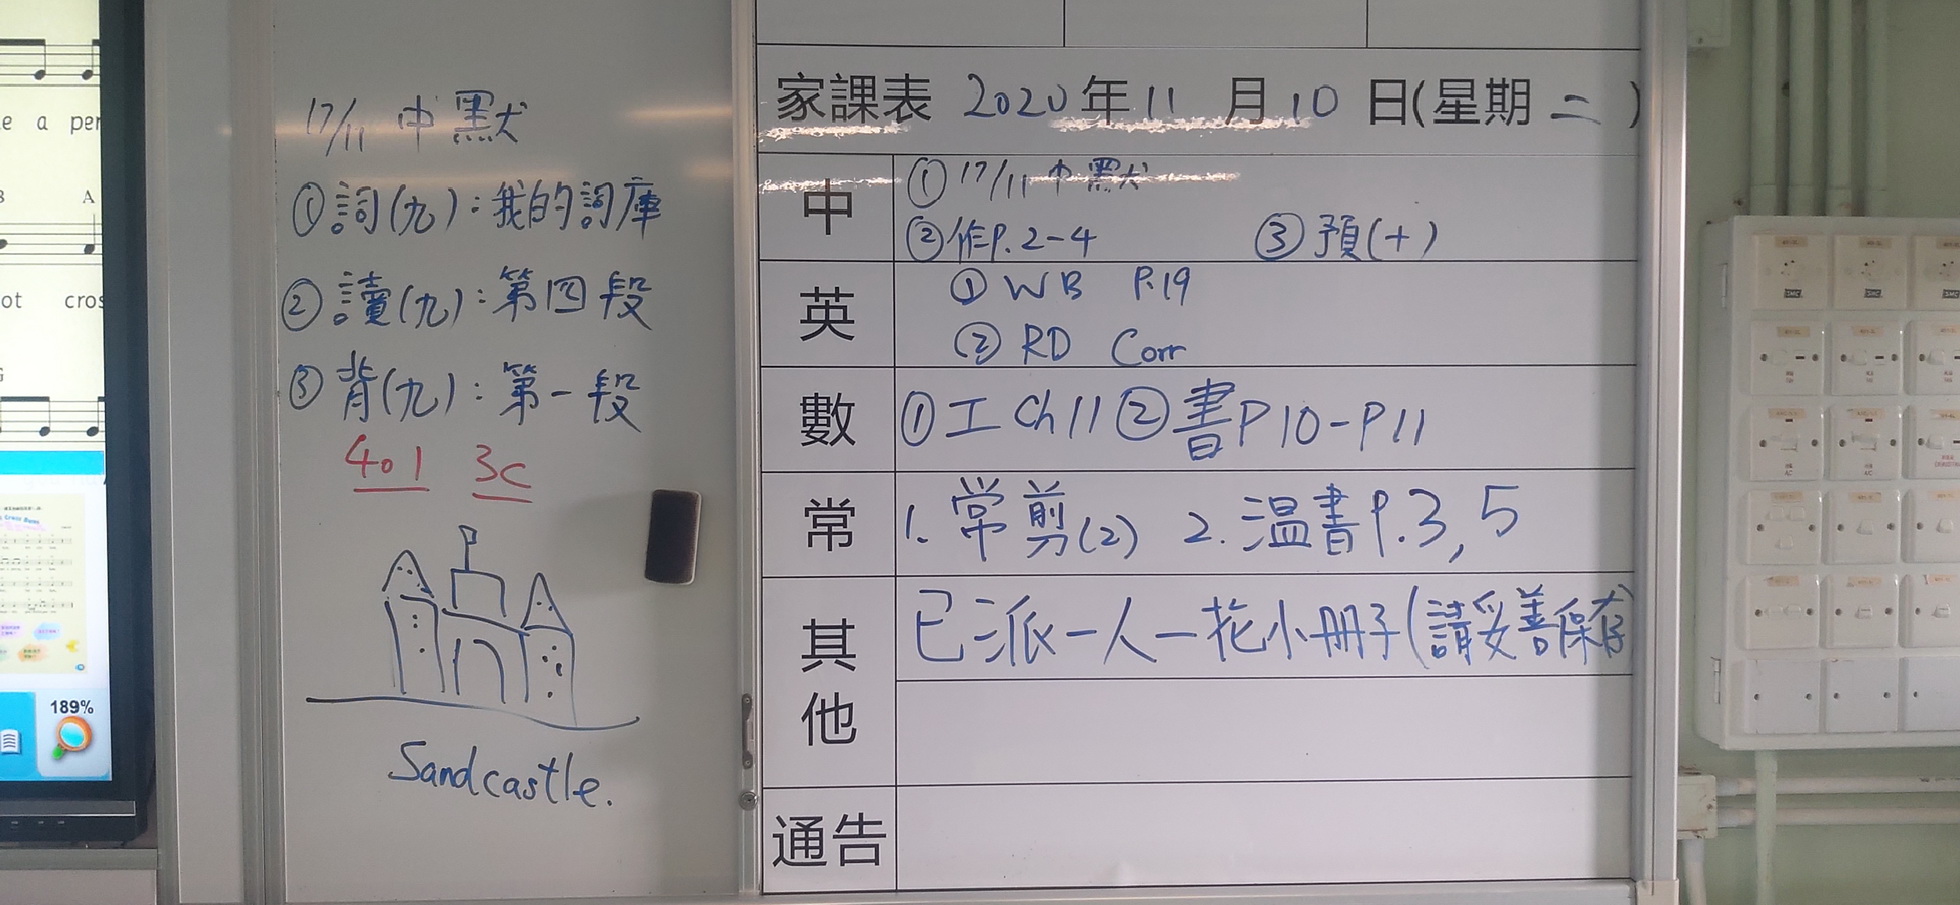 e a per
A
ot cros
G
189%
17/11 中默
①詞(九):我的詞庫
②讀(九):第四段
③背(九):第一段
401 3C
Sandcastle.
家課表 2020年11月10日(星期二)
中
①17/11 中默
②作P.2-4 ③預(十)
英
①WB P.19
②RD Corr
數
①工Ch11②書P10-P11
常
1.常剪(2) 2.溫書P.3,5
其他
已派一人一花小冊子(請妥善保存
通告